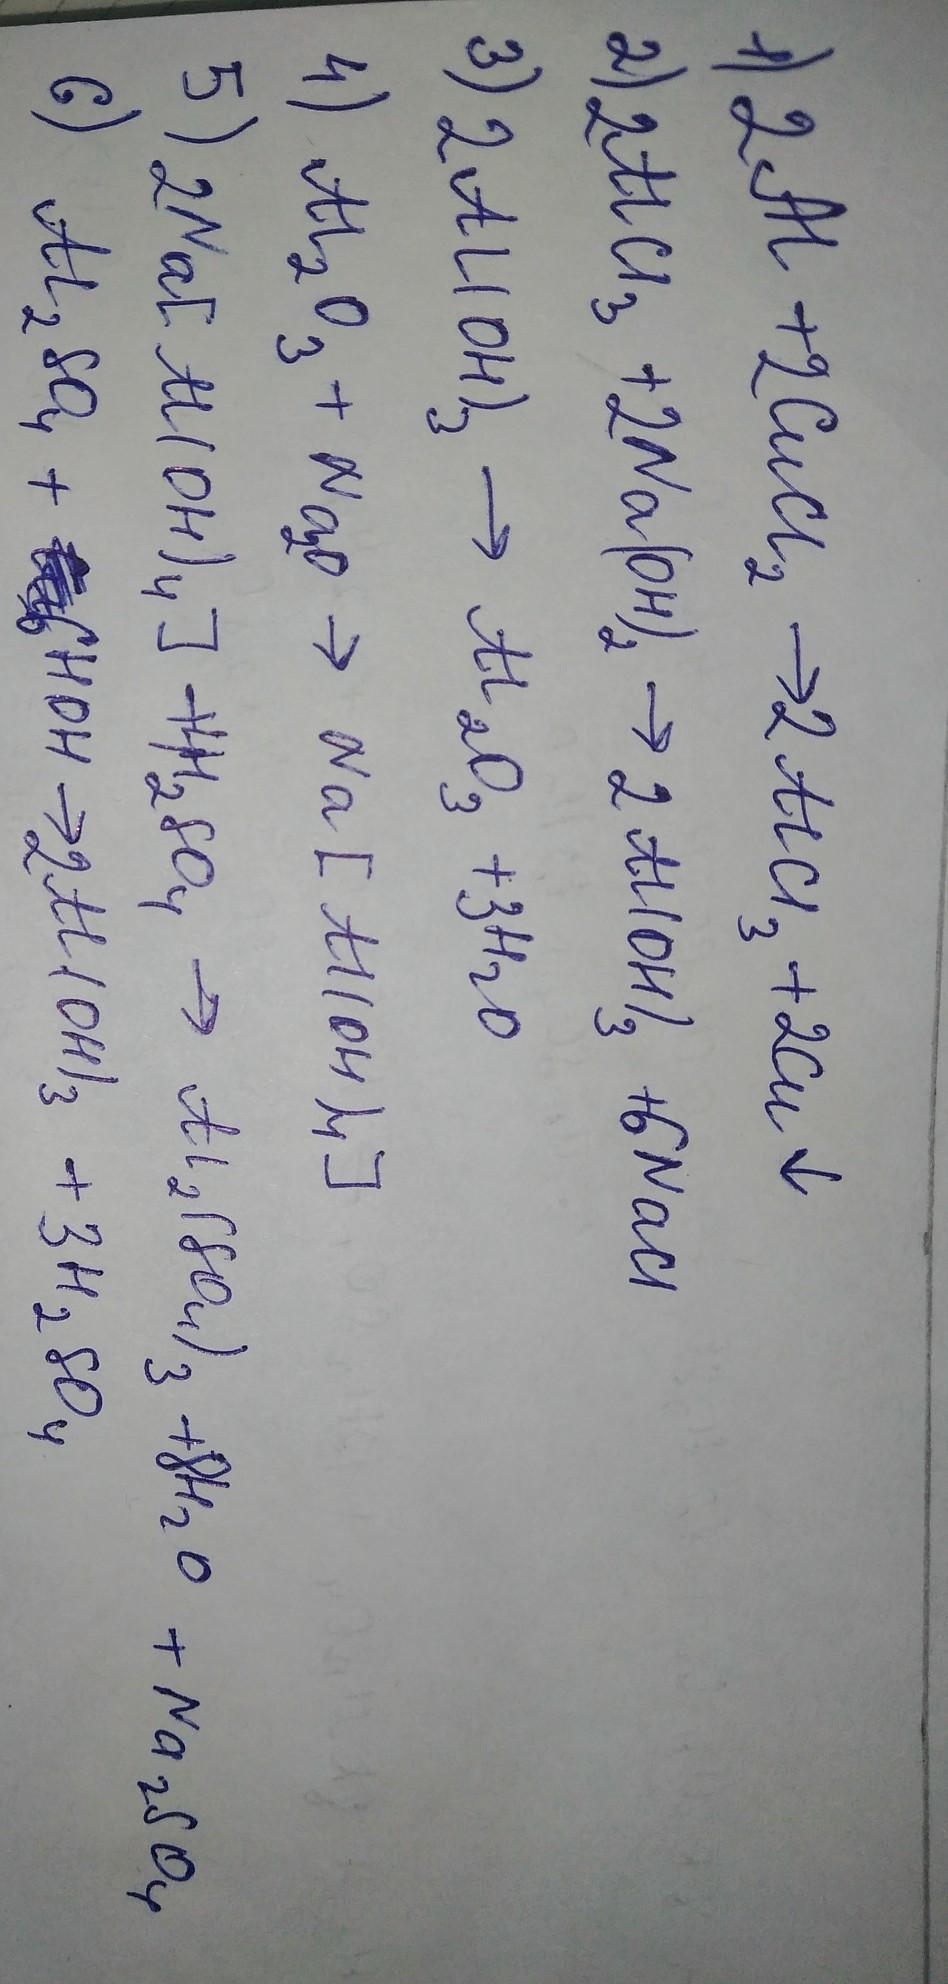 1) 2Al + 2CuCl₂ → 2AlCl₃ + 2Cu↓
2) 2AlCl₃ + 2Na(OH)₂ → 2Al(OH)₃ + 6NaCl
3) 2Al(OH)₃ → Al₂O₃ + 3H₂O
4) Al₂O₃ + Na₂O → Na[Al(OH)₄]
5) 2Na[Al(OH)₄] + 4H₂SO₄ → Al₂(SO₄)₃ + 8H₂O + Na₂SO₄
6) Al₂SO₄ + 6HOH → 2Al(OH)₃ + 3H₂SO₄